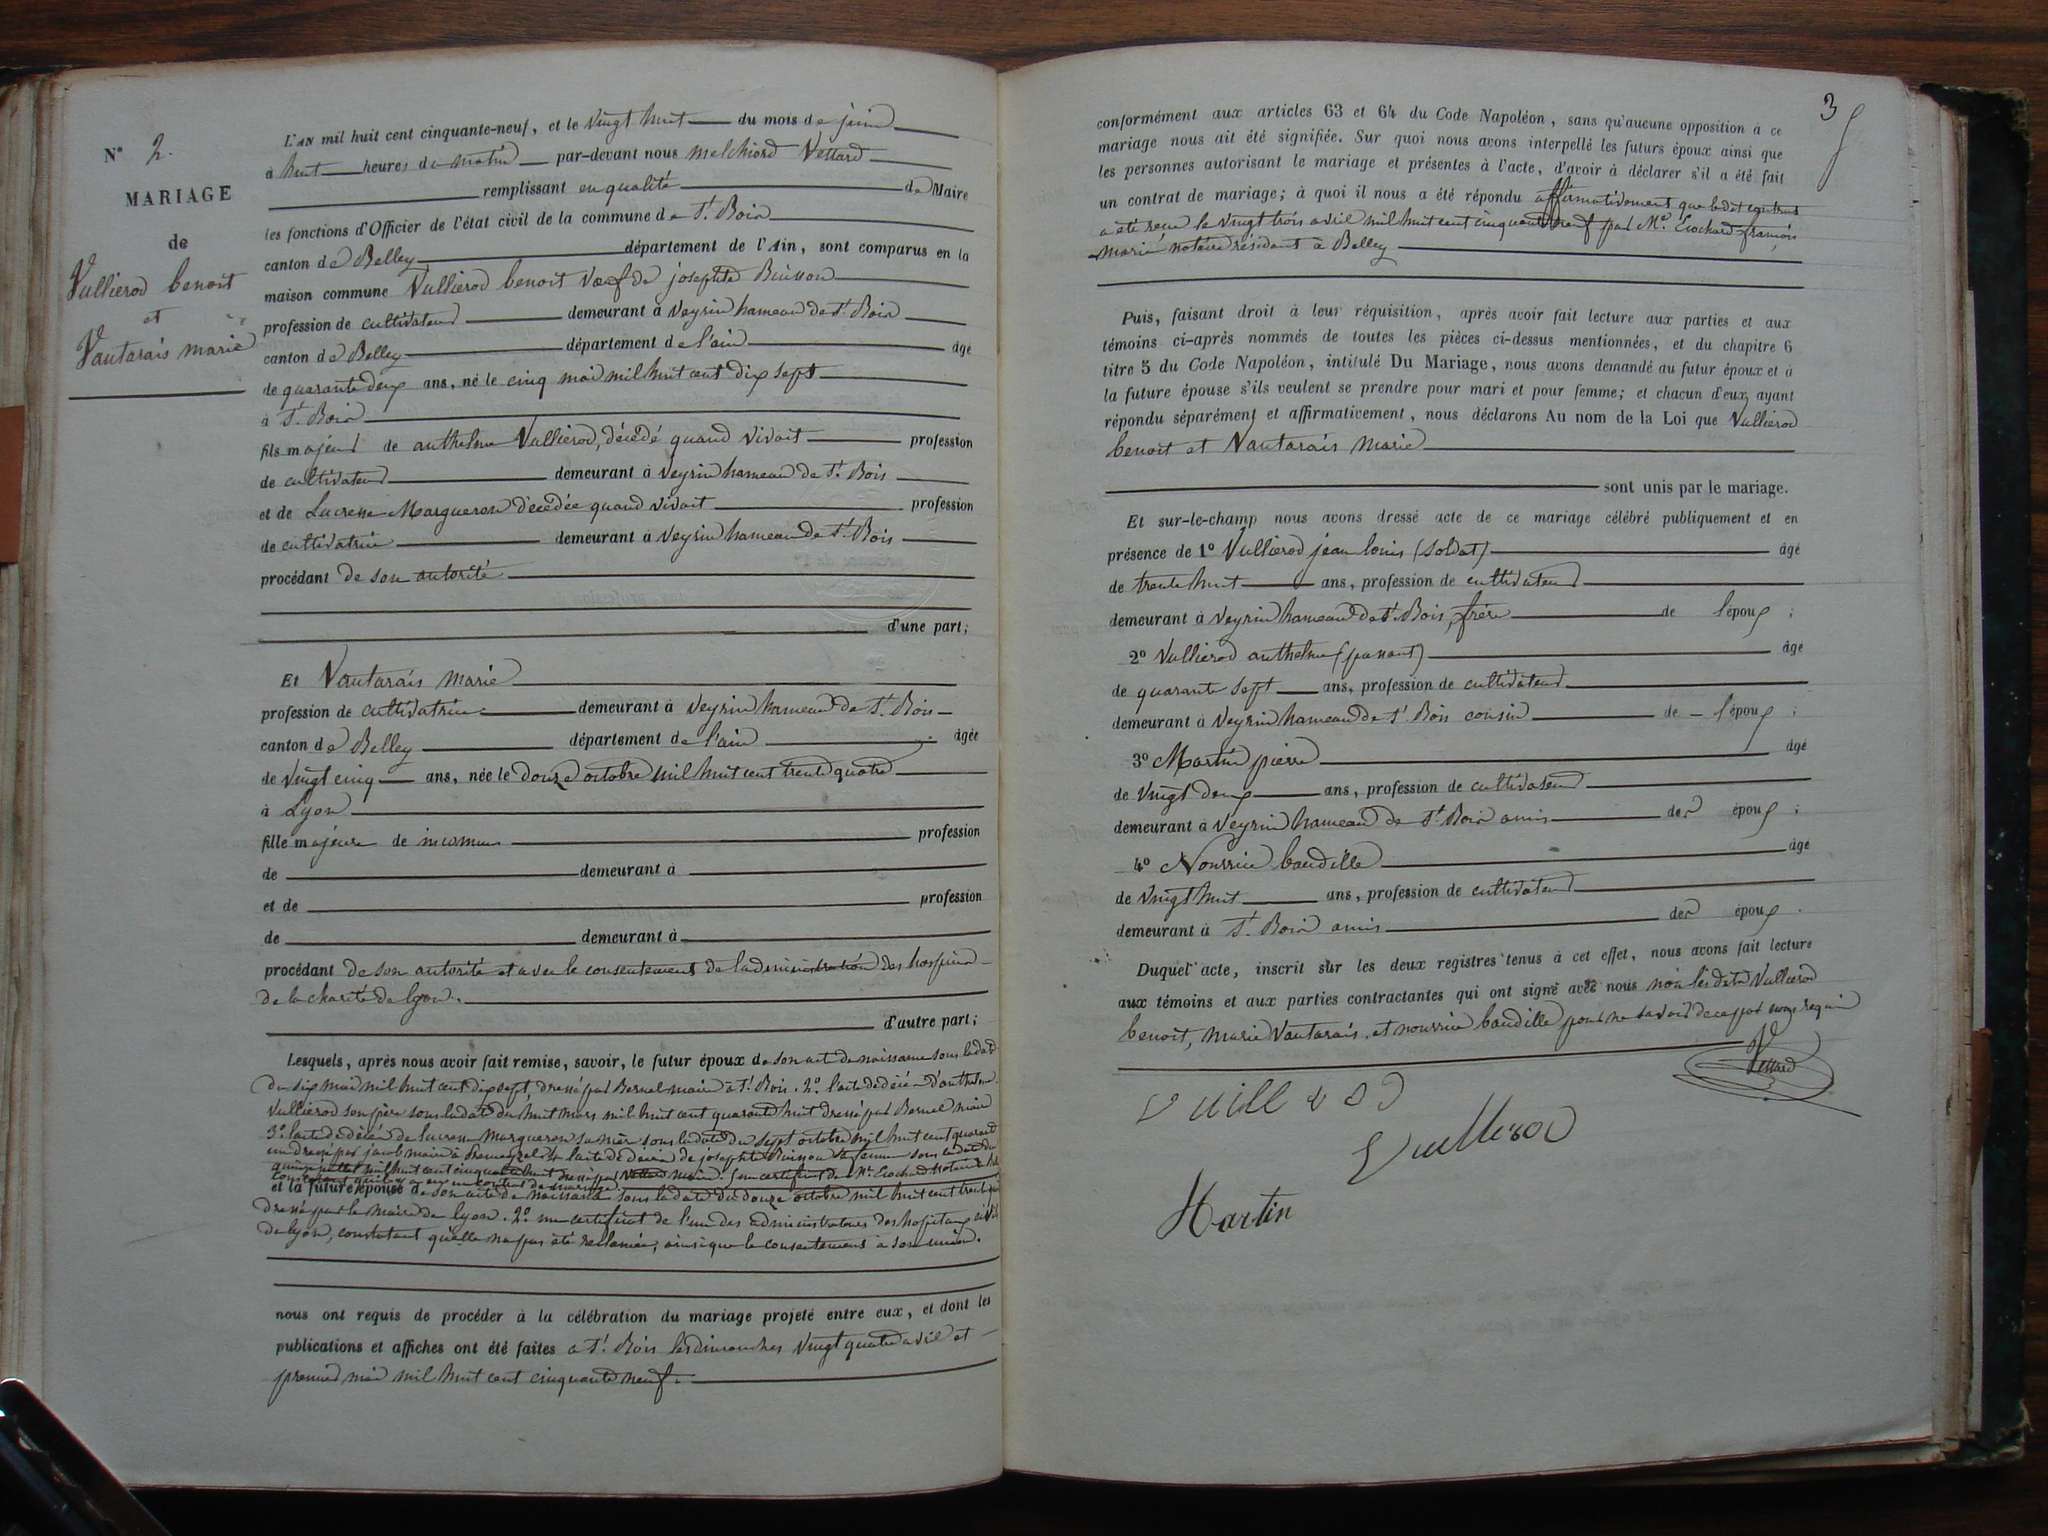 N° 2.
MARIAGE
de
Vullierod benoit
et
Vautarais marie
L'AN mil huit cent cinquante-neuf, et le vingt huit du mois de juin
à huit heures du matin par-devant nous melchiord Vettard
remplissant en qualité de Maire
les fonctions d'Officier de l'état civil de la commune de St. Bois
canton de Belley département de l'Ain, sont comparus en la
maison commune Vullierod benoit Vœf de josephte Buisson
profession de cultivateur demeurant à Veyrin hameau de St. Bois
canton de Belley département de l'ain âgé
de quarante deux ans, né le cinq mai mil huit cent dix sept
à St. Bois
fils majeur de anthelme Vullierod, décédé quand vivait profession
de cultivateur demeurant à Veyrin hameau de St. Bois
et de Lucresse Margueron décédée quand vivait profession
de cultivatrice demeurant à Veyrin hameau de St. Bois
procédant de son autorité
d'une part;
Et Vautarais marie
profession de cultivatrice demeurant à Veyrin hameau de St. Bois
canton de Belley département de l'ain âgée
de vingt cinq ans, née le douze octobre mil huit cent trente quatre
à Lyon
fille majeure de inconnus profession
de demeurant à
et de profession
de demeurant à
procédant de son autorité et avec le consentement de l'administration des hospices
de la charité de lyon.
d'autre part;
Lesquels, après nous avoir fait remise, savoir, le futur époux de son acte de naissance sous la date
du six mai mil huit cent dix sept, dressé par Bernel maire à St. Bois. 2° l'acte de décés d'anthelme
Vullierod son père sous la date du huit mars mil huit cent quarante huit dressé par Bernel maire
3° l'acte de décés de lucresse Margueron sa mère sous la date du sept octobre mil huit cent quarante
un dressé par jacob maire à l'acte de décés de josephte Buisson sa femme sous la date du
quinze mil huit cent cinquante huit dressé par Vettard maire. un certificat de Me. Erochard Notaire
constatant qu'il y a eu un contrat de mariage.
et la future épouse de son acte de naissance sous la date du douze octobre mil huit cent trente quatre
dressé par le maire de lyon. 2° un certificat de l'un des administrateurs des hospitaux civils
de lyon, constatant qu'elle n'a pas été reclamée, ainsi que le consentement à son union.
nous ont requis de procéder à la célébration du mariage projeté entre eux, et dont les
publications et affiches ont été faites a St. Bois les dimanches vingt quatre avril et
premier mai mil huit cent cinquante neuf.
3
conformément aux articles 63 et 64 du Code Napoléon, sans qu'aucune opposition à ce
mariage nous ait été signifiée. Sur quoi nous avons interpellé les futurs époux ainsi que
les personnes autorisant le mariage et présentes à l'acte, d'avoir à déclarer s'il a été fait
un contrat de mariage; à quoi il nous a été répondu affirmativement que ledit contrat
a été reçu le vingt trois avril mil huit cent cinquante neuf par Me. Erochard françois
marie notaire résidant à Belley
Puis, faisant droit à leur réquisition, après avoir fait lecture aux parties et aux
témoins ci-après nommés de toutes les pièces ci-dessus mentionnées, et du chapitre 6
titre 5 du Code Napoléon, intitulé Du Mariage, nous avons demandé au futur époux et à
la future épouse s'ils veulent se prendre pour mari et pour femme; et chacun d'eux ayant
répondu séparément et affirmativement, nous déclarons Au nom de la Loi que Vullierod
benoit et Vautarais marie
sont unis par le mariage.
Et sur-le-champ nous avons dressé acte de ce mariage célébré publiquement et en
présence de 1° Vullierod jean louis (soldat) âgé
de trente huit ans, profession de cultivateur
demeurant à Veyrin hameau de St. Bois, frère de l'époux;
2° Vullierod anthelme (passant) âgé
de quarante sept ans, profession de cultivateur
demeurant à Veyrin hameau de St. Bois cousin de l'époux;
3° Martin pierre âgé
de vingt deux ans, profession de cultivateur
demeurant à Veyrin hameau de St. Bois amis des époux;
4° Nourrice baudille âgé
de vingt huit ans, profession de cultivateur
demeurant à St. Bois amis des époux.
Duquel acte, inscrit sur les deux registres tenus à cet effet, nous avons fait lecture
aux témoins et aux parties contractantes qui ont signé avec nous non les dits Vullierod
benoit, marie Vautarais, et nourrice baudille pour ne savoir de ce par nous requis
Vettard
Vullierod
Martin